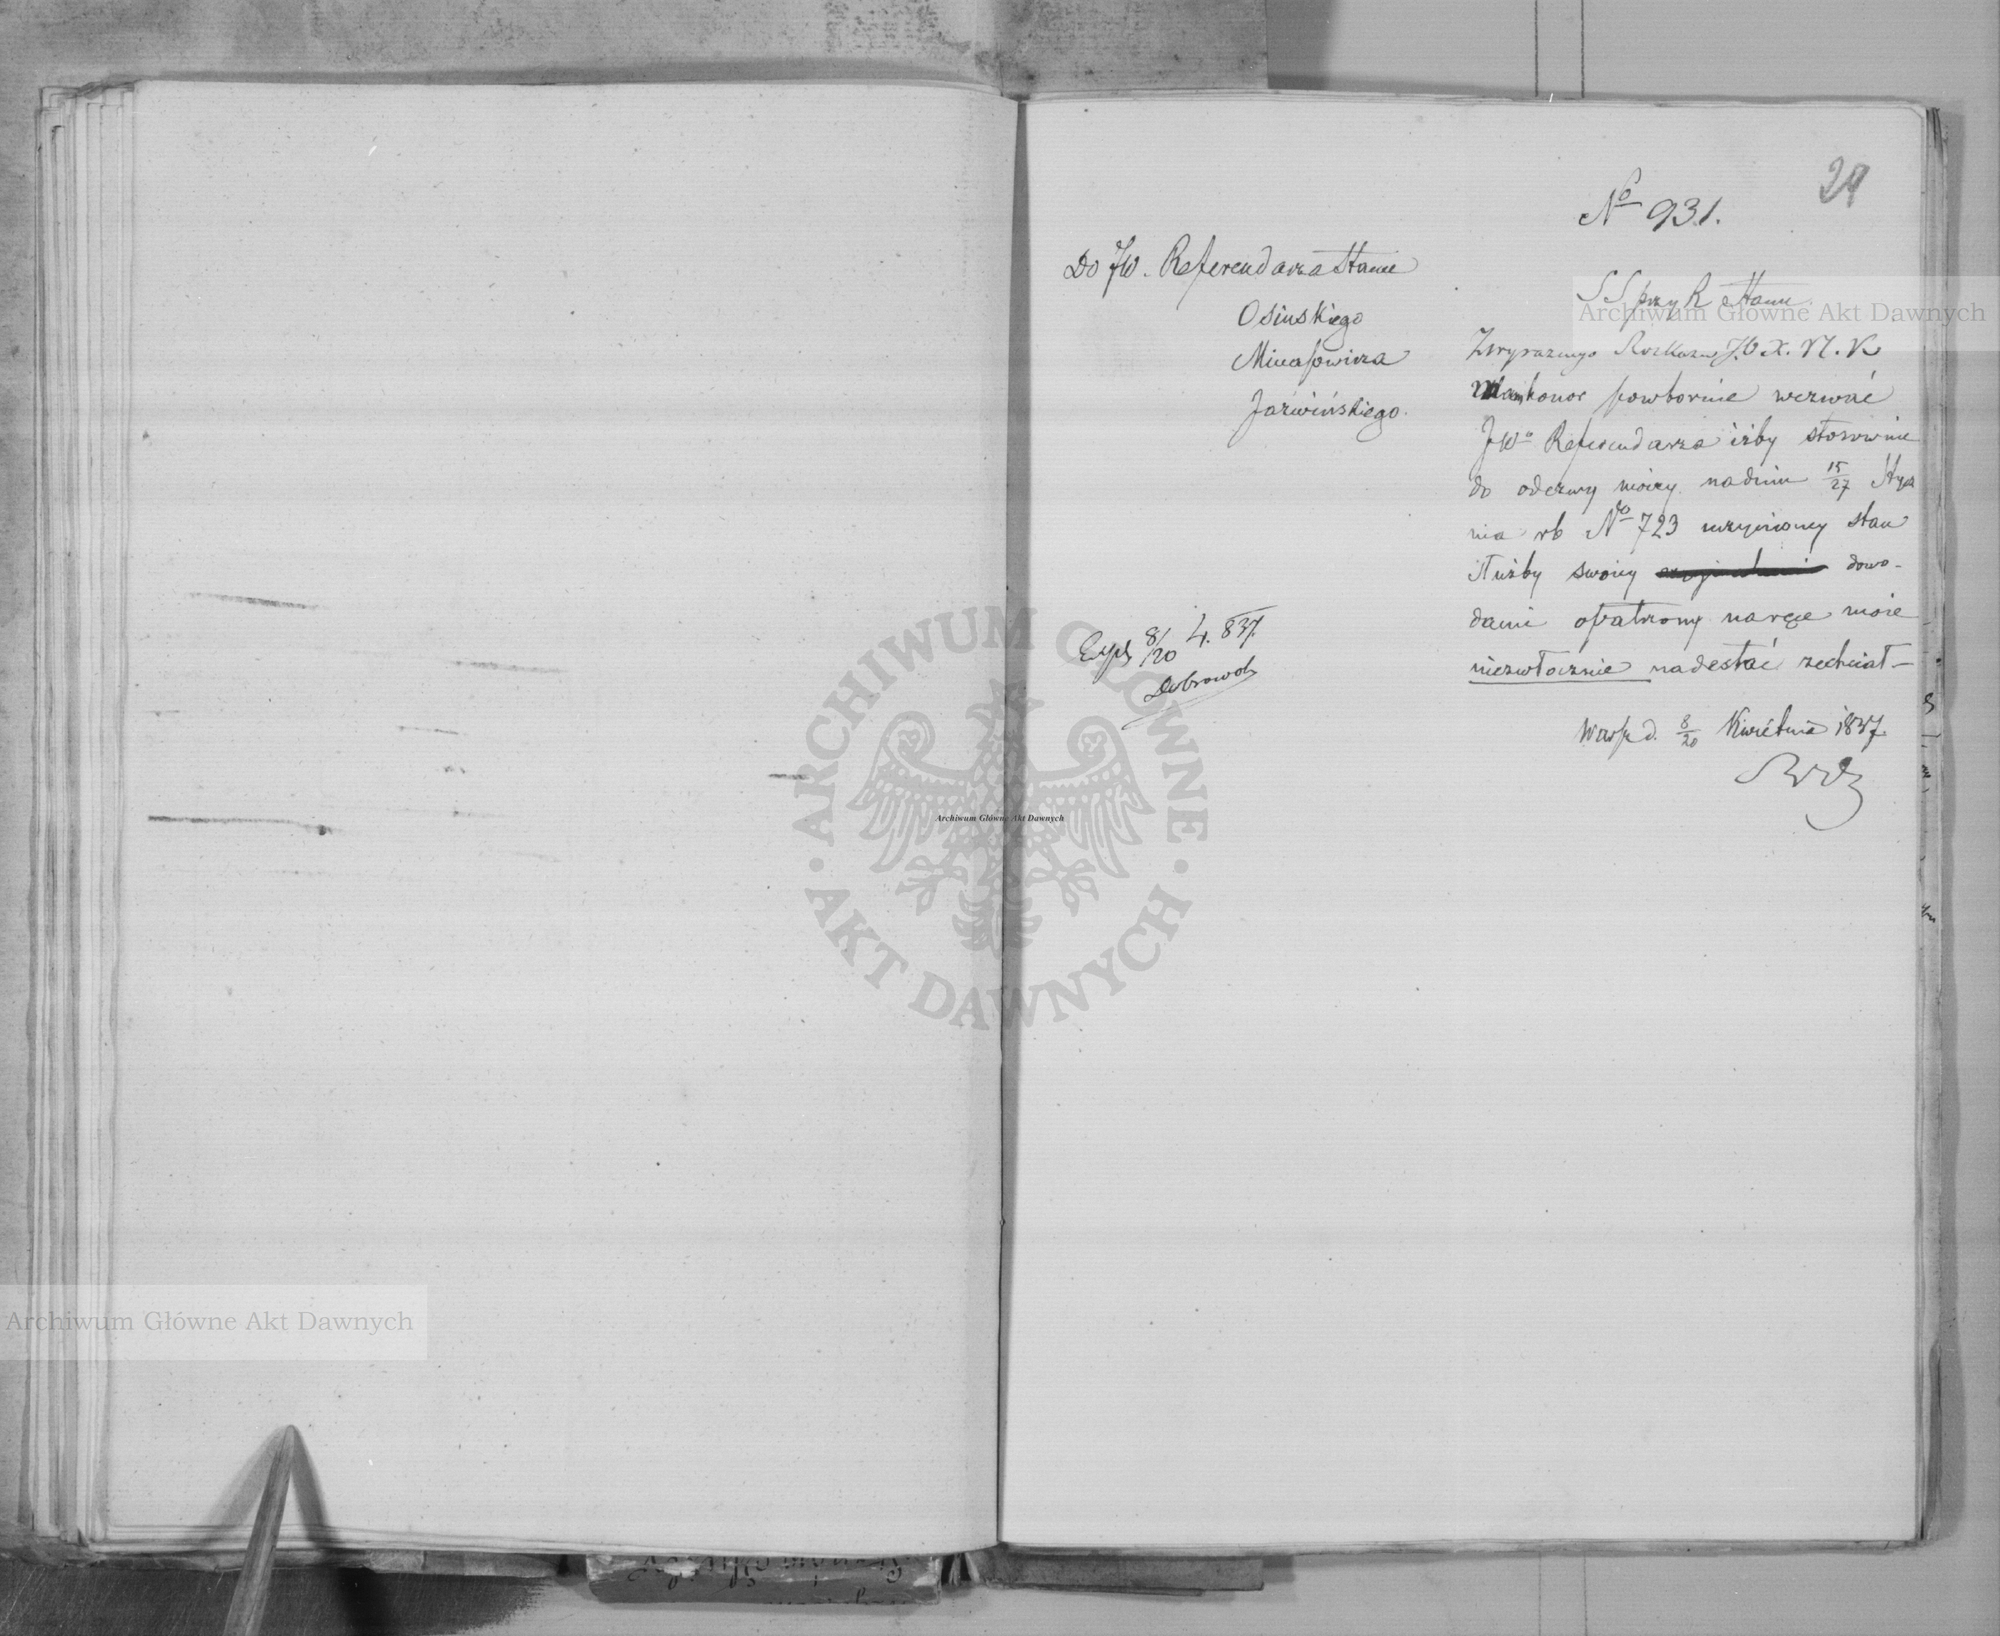 29
No 931.
Do JW. Referendarza Stanu
Osińskiego
Minasowicza
Jaźwińskiego.
SS przy R Stanu
Zwyraznego Rozkazu J.O.X.N.K
Mam honor powtornie wezwać
JWo Referendarza iżby stosownie
do odezwy moiey nadniu 15/27 Stycz
nia rb No 723 uczynioney stan
Służby swoiey dowo-
dami opatrzony naręce moie
niezwłocznie nadesłać zechciał –
Warsz d. 8/20 Kwietnia 1837.
Exp 8/20 4. 837.
Dobrowol
Archiwum Główne Akt Dawnych
ARCHIWUM GŁÓWNE
AKT DAWNYCH
Archiwum Główne Akt Dawnych
Archiwum Główne Akt Dawnych